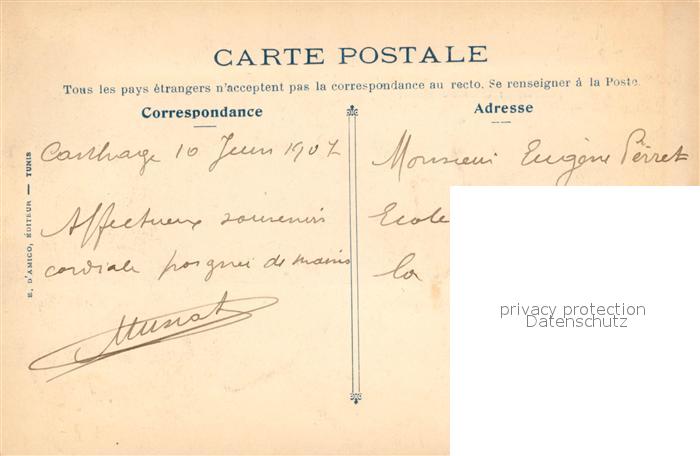 CARTE POSTALE
Tous les pays étrangers n'acceptent pas la correspondance au recto. Se renseigner à la Poste.
Correspondance
Carthage 10 Juin 1907
Affectueux souvenir
cordiale poignée de mains
E. D'AMICO, ÉDITEUR — TUNIS
Adresse
Monsieur Eugène Perret
Ecole
la
privacy protection
Datenschutz